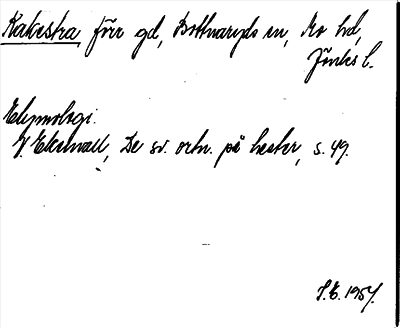 Kakestra, förr gd, Bottnaryds sn, Mo hd,
Jönk. l.
Etymologi.
V. Ekenvall, De sv. ortn. på hester, s. 49.
S.E. 1957.